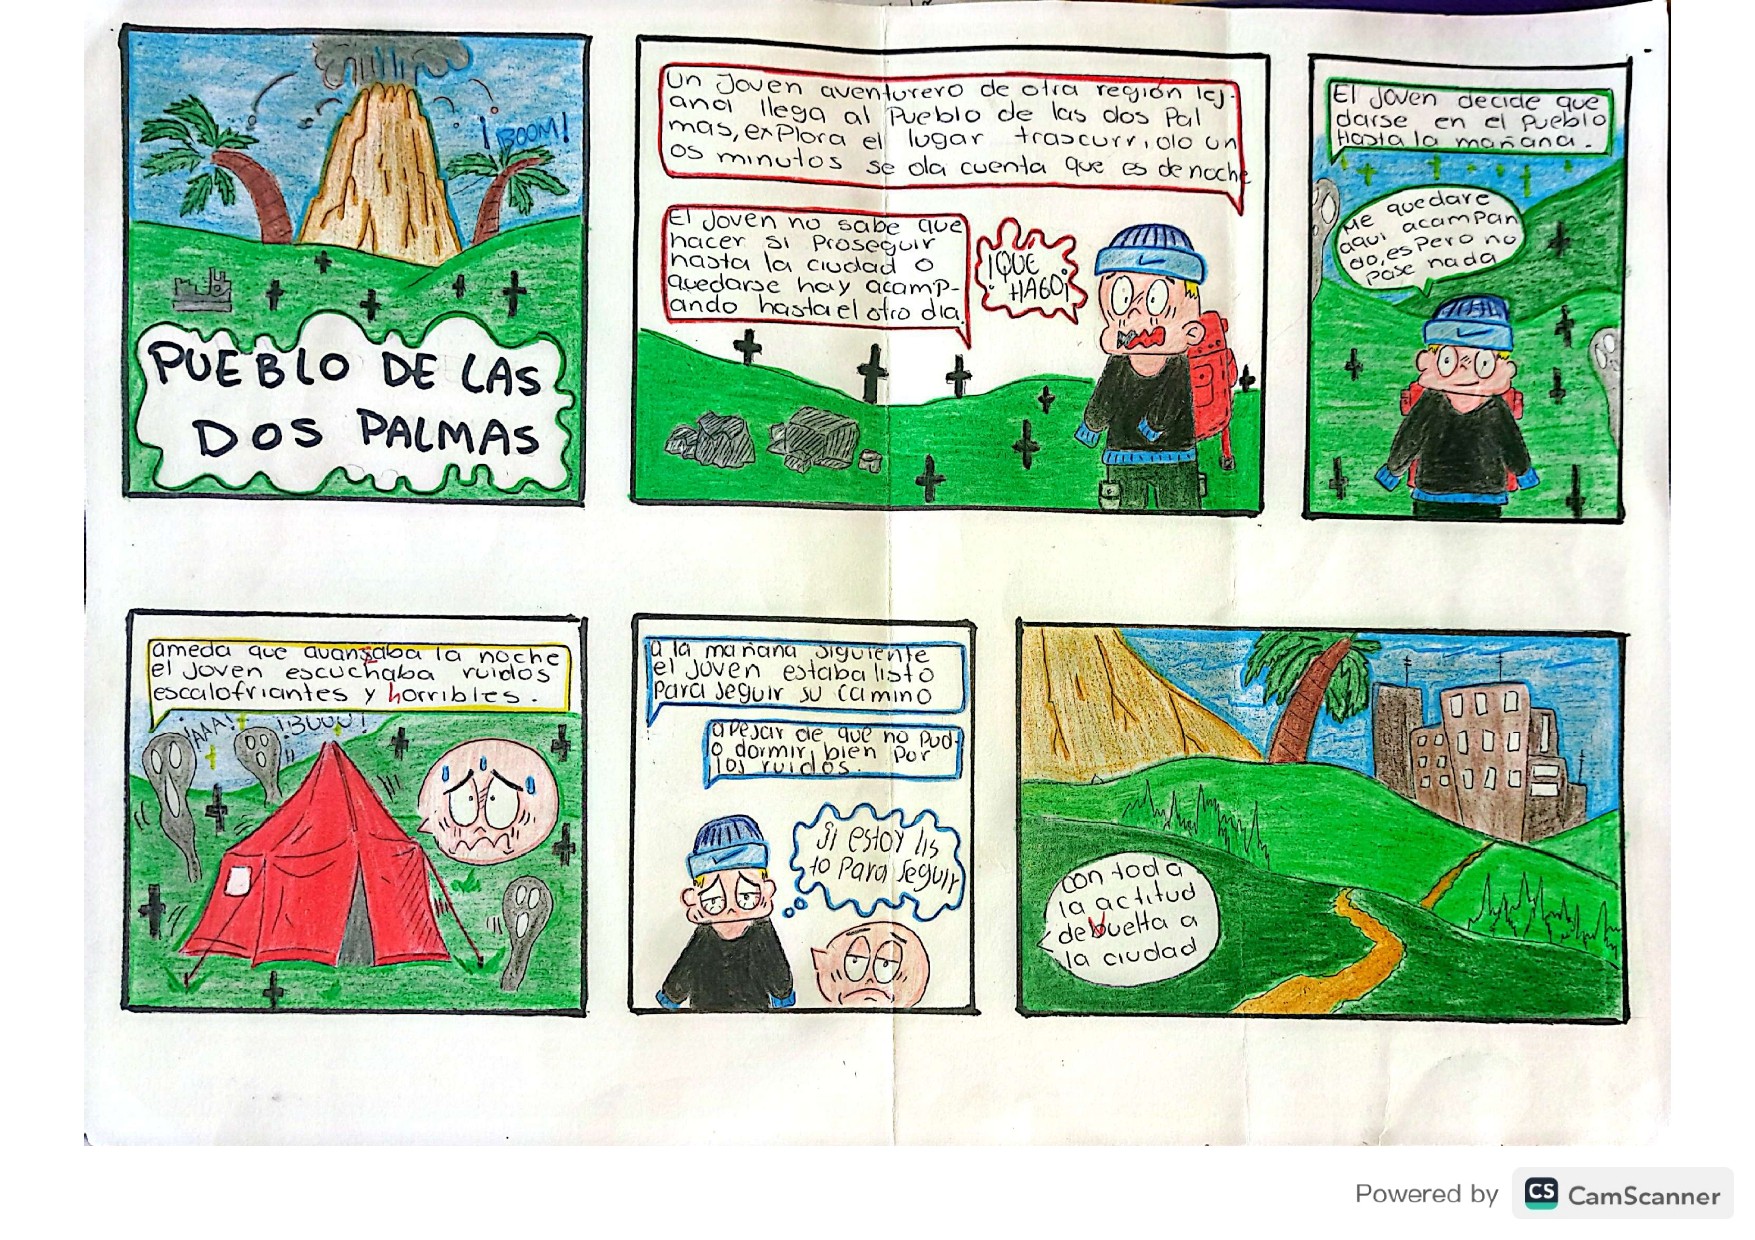 ¡BOOM!
PUEBLO DE LAS
DOS PALMAS
Un Joven aventurero de otra región lej-
ana llega al Pueblo de las dos Pal
mas, explora el lugar trascurrido un
os minutos se da cuenta que es de noche
El Joven no sabe que
hacer si Proseguir
hasta la ciudad o
quedarse hay acamp-
ando hasta el otro dia.
¡QUE
HAGO!
El Joven decide que
darse en el Pueblo
Hasta la mañana.
Me quedare
aqui acampan
do, espero no
pase nada
ameda que avansaba la noche
el Joven escuchaba ruidos
escalofriantes y horribles.
¡AAA!
¡BUUU!
a la mañana siguiente
el Joven estaba listo
Para seguir su camino
apesar de que no pud-
o dormir bien por
los ruidos.
Si estoy lis
to para seguir
con toda
la actitud
de Vuelta a
la ciudad
Powered by CS CamScanner